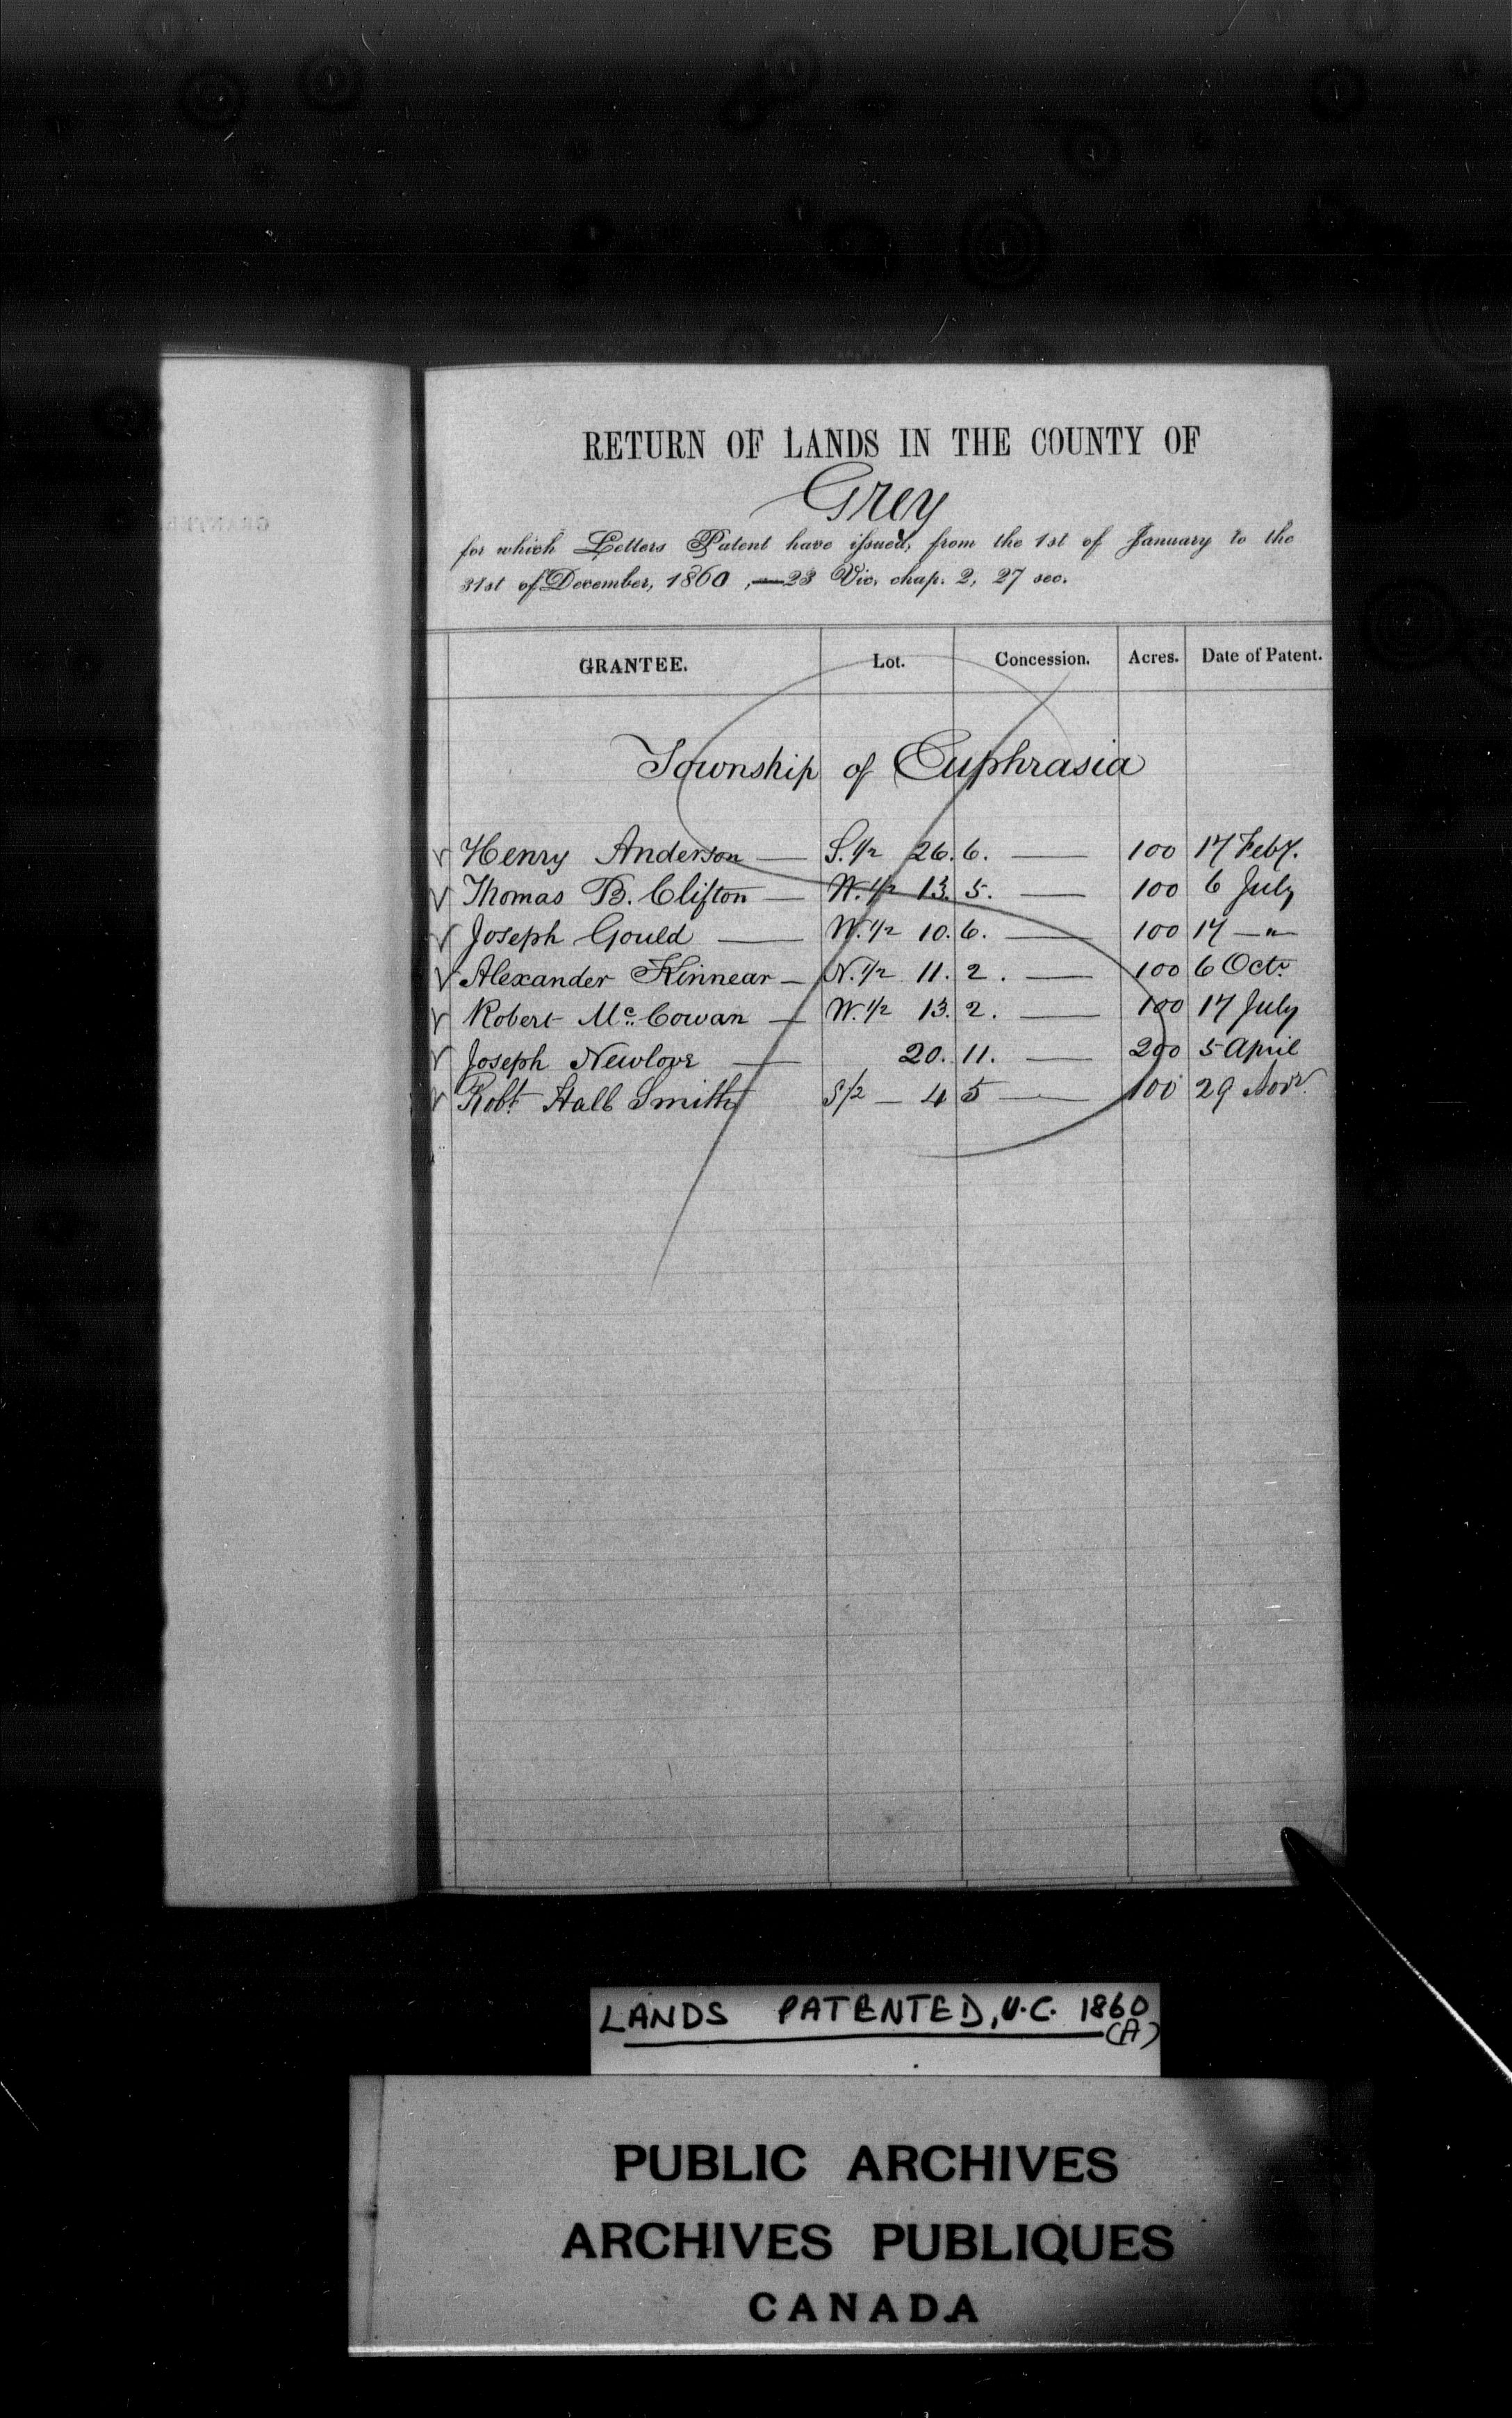 RETURN OF LANDS IN THE COUNTY OF
Grey
for which Letters Patent have issued, from the 1st of January to the
31st of December, 1860, —23 Vic. chap. 2, 27 sec.
GRANTEE. Lot. Concession. Acres. Date of Patent.
Township of Euphrasia
Henry Anderson — S. 1/2 26. 6. — 100 17 Feby.
Thomas B. Clifton — W. 1/2 13. 5. — 100 6 July
Joseph Gould — W. 1/2 10. 6. — 100 17 — "
Alexander Kinnear — N. 1/2 11. 2. — 100 6 Octr
Robert Mc Cowan — W. 1/2 13. 2. — 100 17 July
Joseph Newlove — 20. 11. — 200 5 April
Robt Hall Smith S 1/2 — 4 5 — 100 29 Novr.
LANDS PATENTED, U.C. 1860
(A)
PUBLIC ARCHIVES
ARCHIVES PUBLIQUES
CANADA